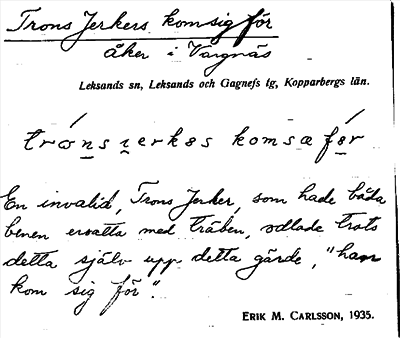 Trons Jerkers komsigför
åker i Vargnäs
Leksands sn, Leksands och Gagnefs tg, Kopparbergs län.
trons ɪerkəs komsæ fər
En invalid, Trons Jerker, som hade båda
benen ersatta med träben, odlade trots
detta själv upp detta gärde, "han
kom sig för".
ERIK M. CARLSSON, 1935.